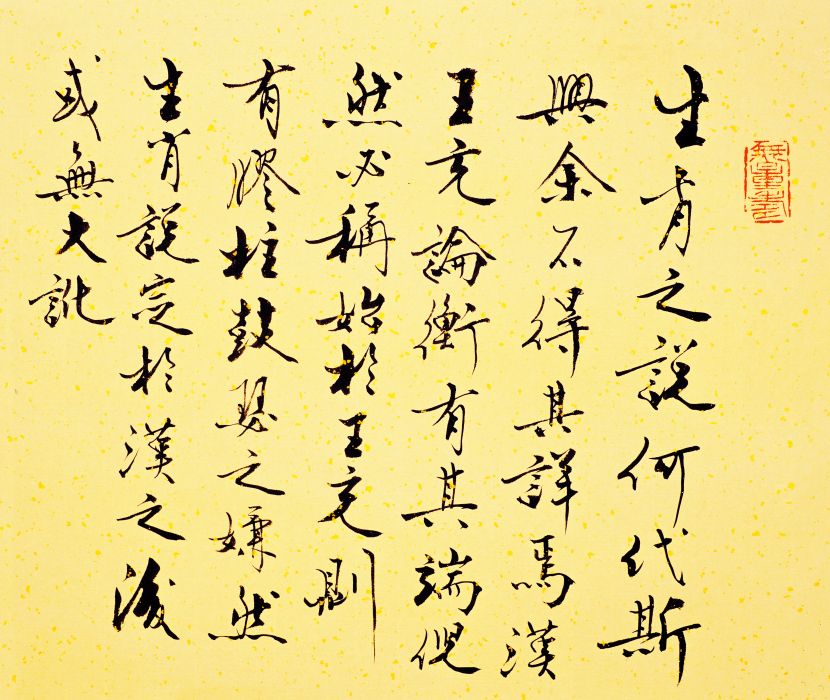 無量壽
生肖之說何代斯
興余不得其詳焉漢
王充論衡有其端倪
然必稱始於王充則
有膠柱鼓瑟之嫌然
生肖說定於漢之後
或無大訛